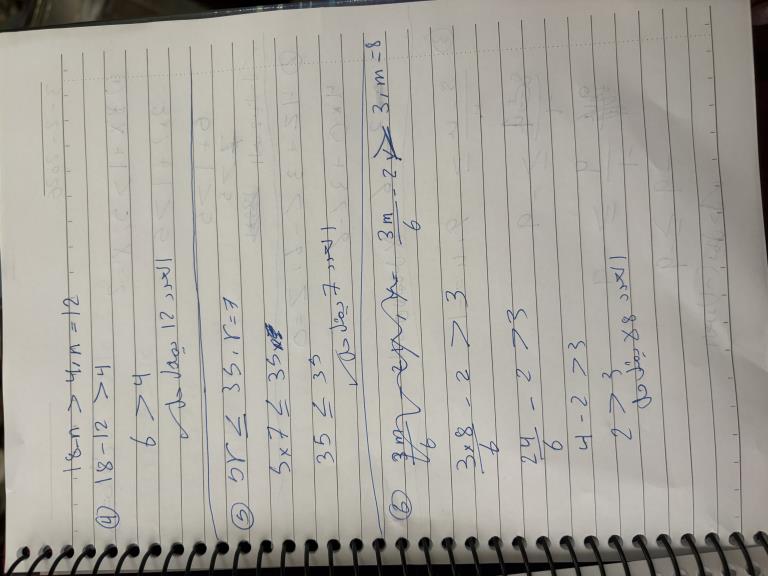 18-n > 4, n = 12
④ 18-12 > 4
6 > 4
العدد 12 حل
⑤ 5r ≤ 35, r = 7
5×7 ≤ 35
35 ≤ 35
العدد 7 حل
⑥ 3m/6 - 2 > 3, m = 8
3×8/6 - 2 > 3
24/6 - 2 > 3
4 - 2 > 3
2 > 3
العدد 8